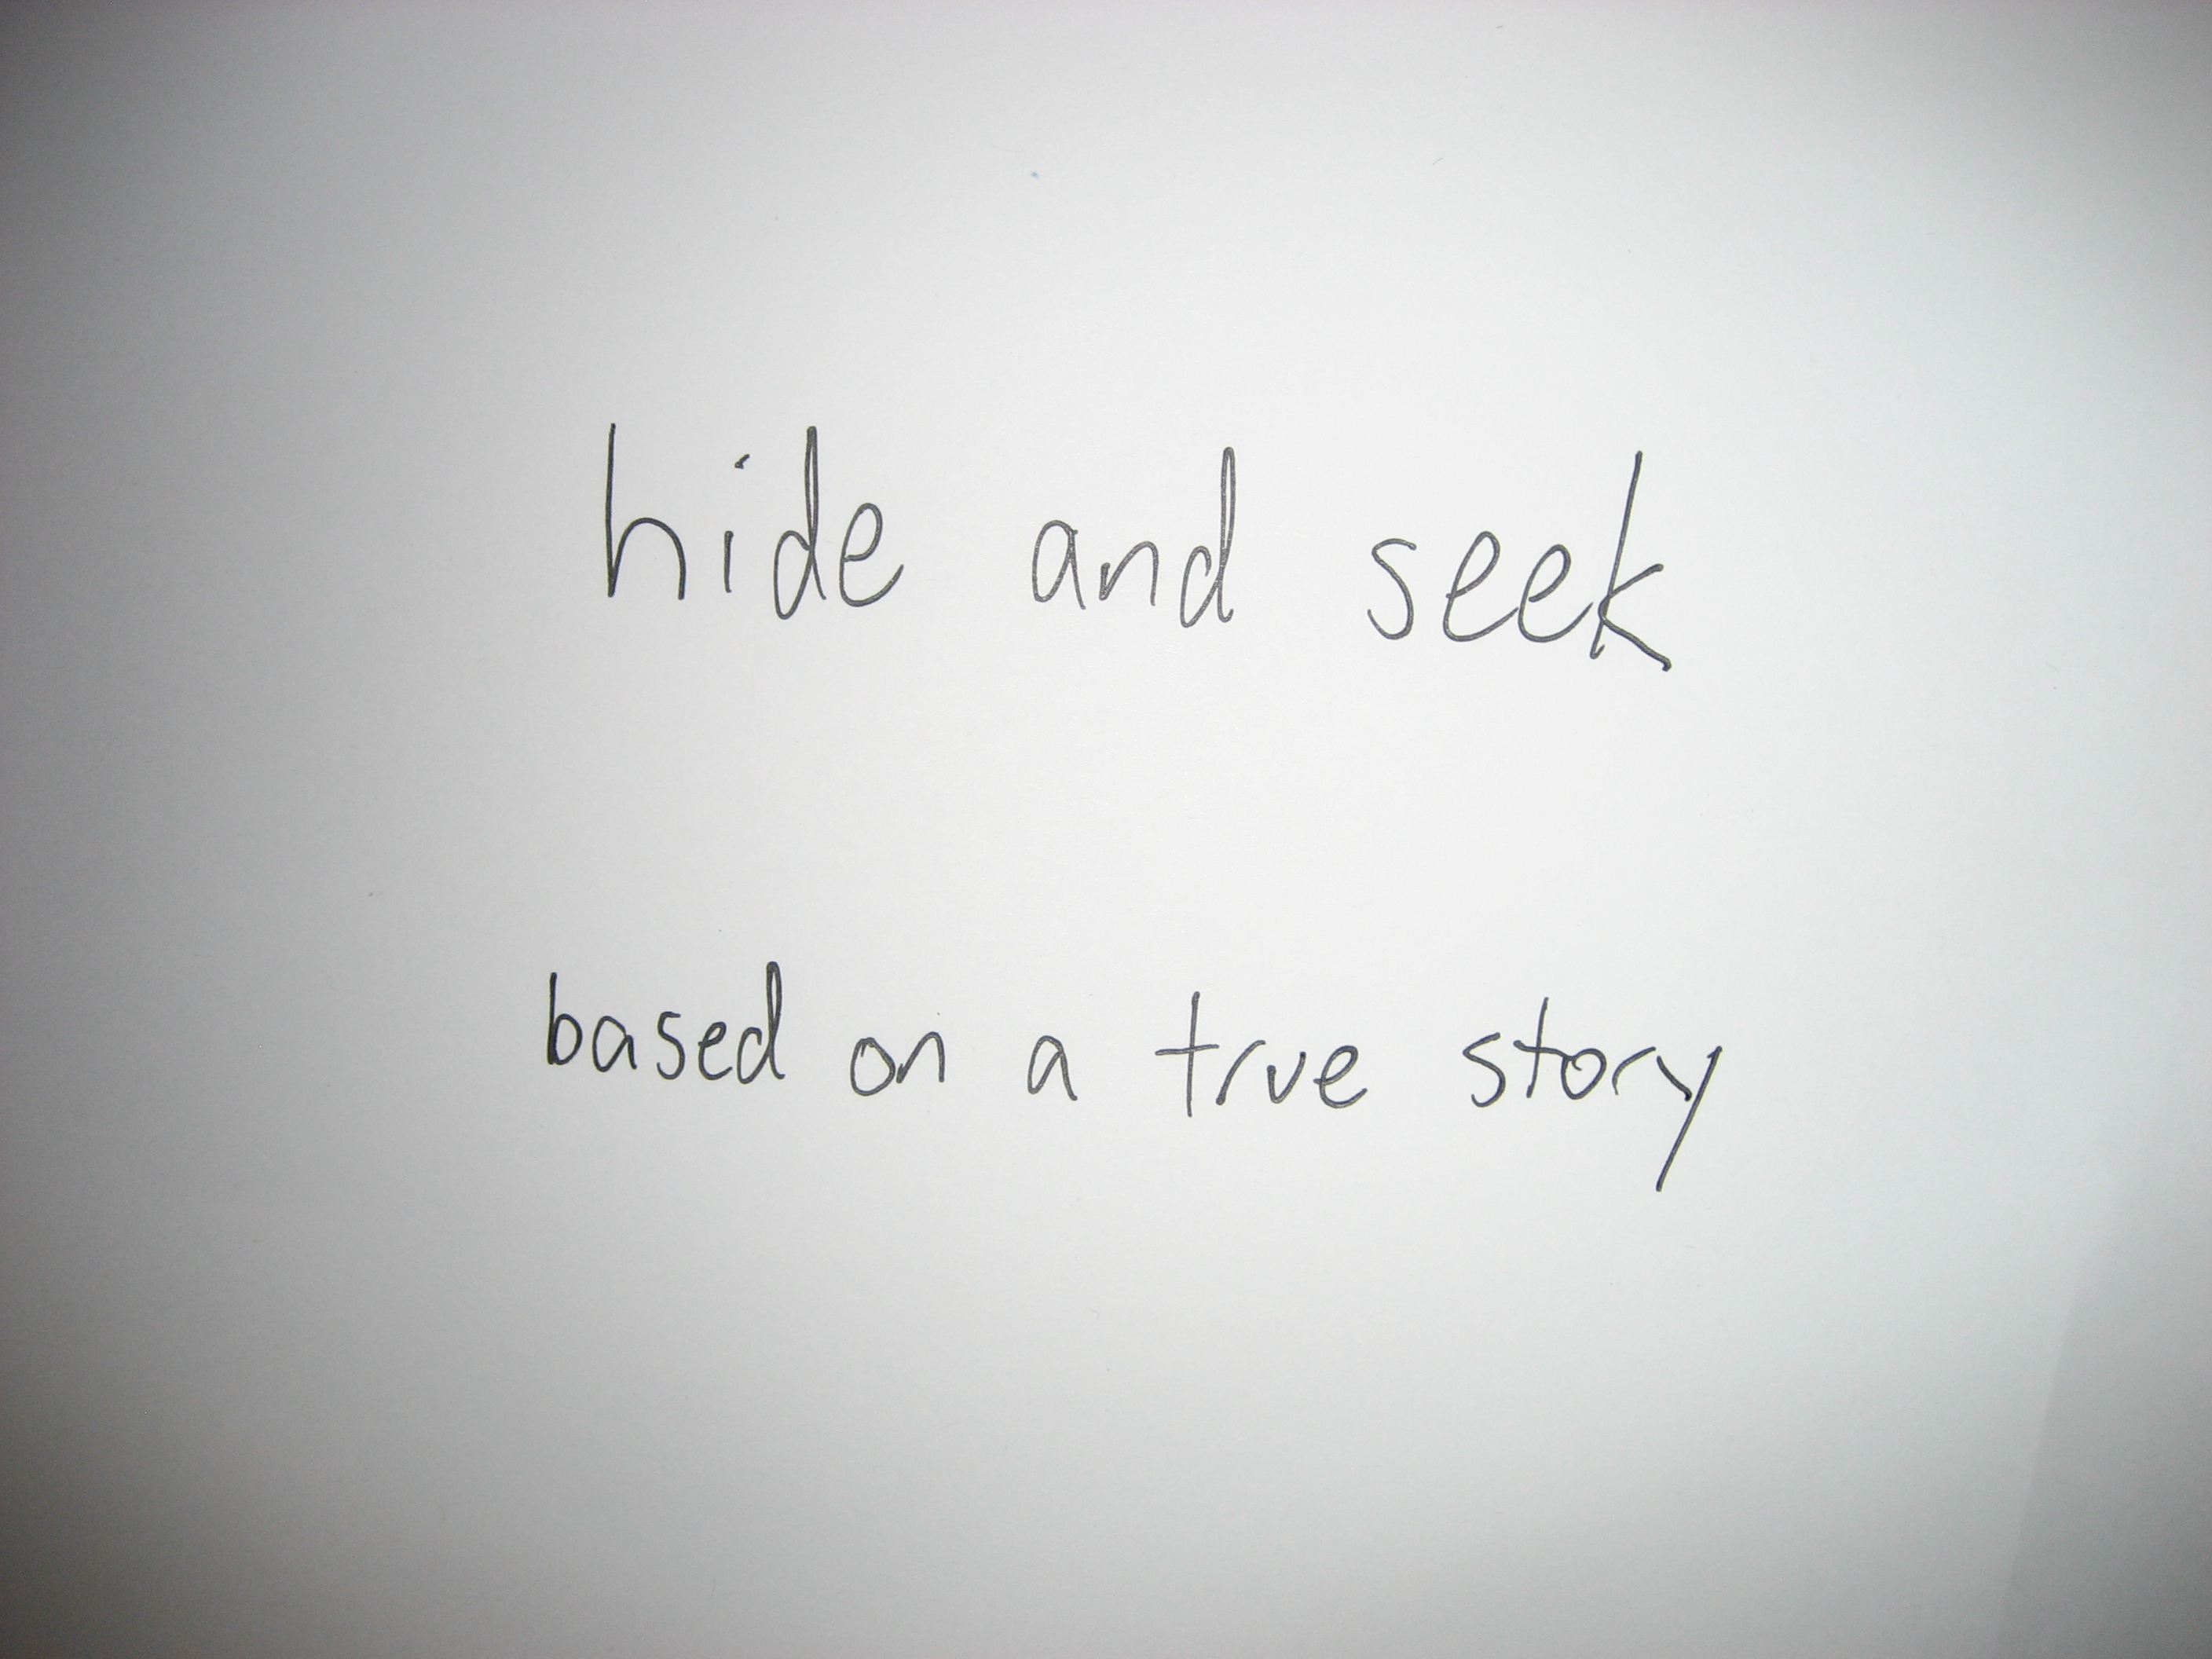 hide and seek
based on a true story